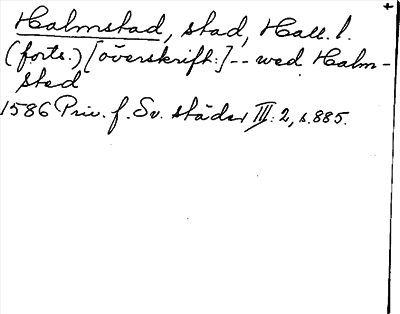 Halmstad, stad, Hall. l.
(forts.) [överskrift:] -- wed Halm-
sted
1586 Priv. f. Sv. städer III: 2, s. 885.